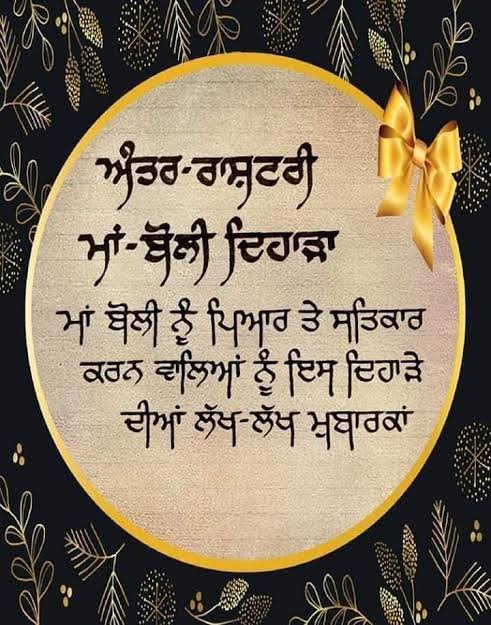 ਅੰਤਰ-ਰਾਸ਼ਟਰੀ
ਮਾਂ-ਬੋਲੀ ਦਿਹਾੜਾ
ਮਾਂ ਬੋਲੀ ਨੂੰ ਪਿਆਰ ਤੇ ਸਤਿਕਾਰ
ਕਰਨ ਵਾਲਿਆਂ ਨੂੰ ਇਸ ਦਿਹਾੜੇ
ਦੀਆਂ ਲੱਖ-ਲੱਖ ਮੁਬਾਰਕਾਂ